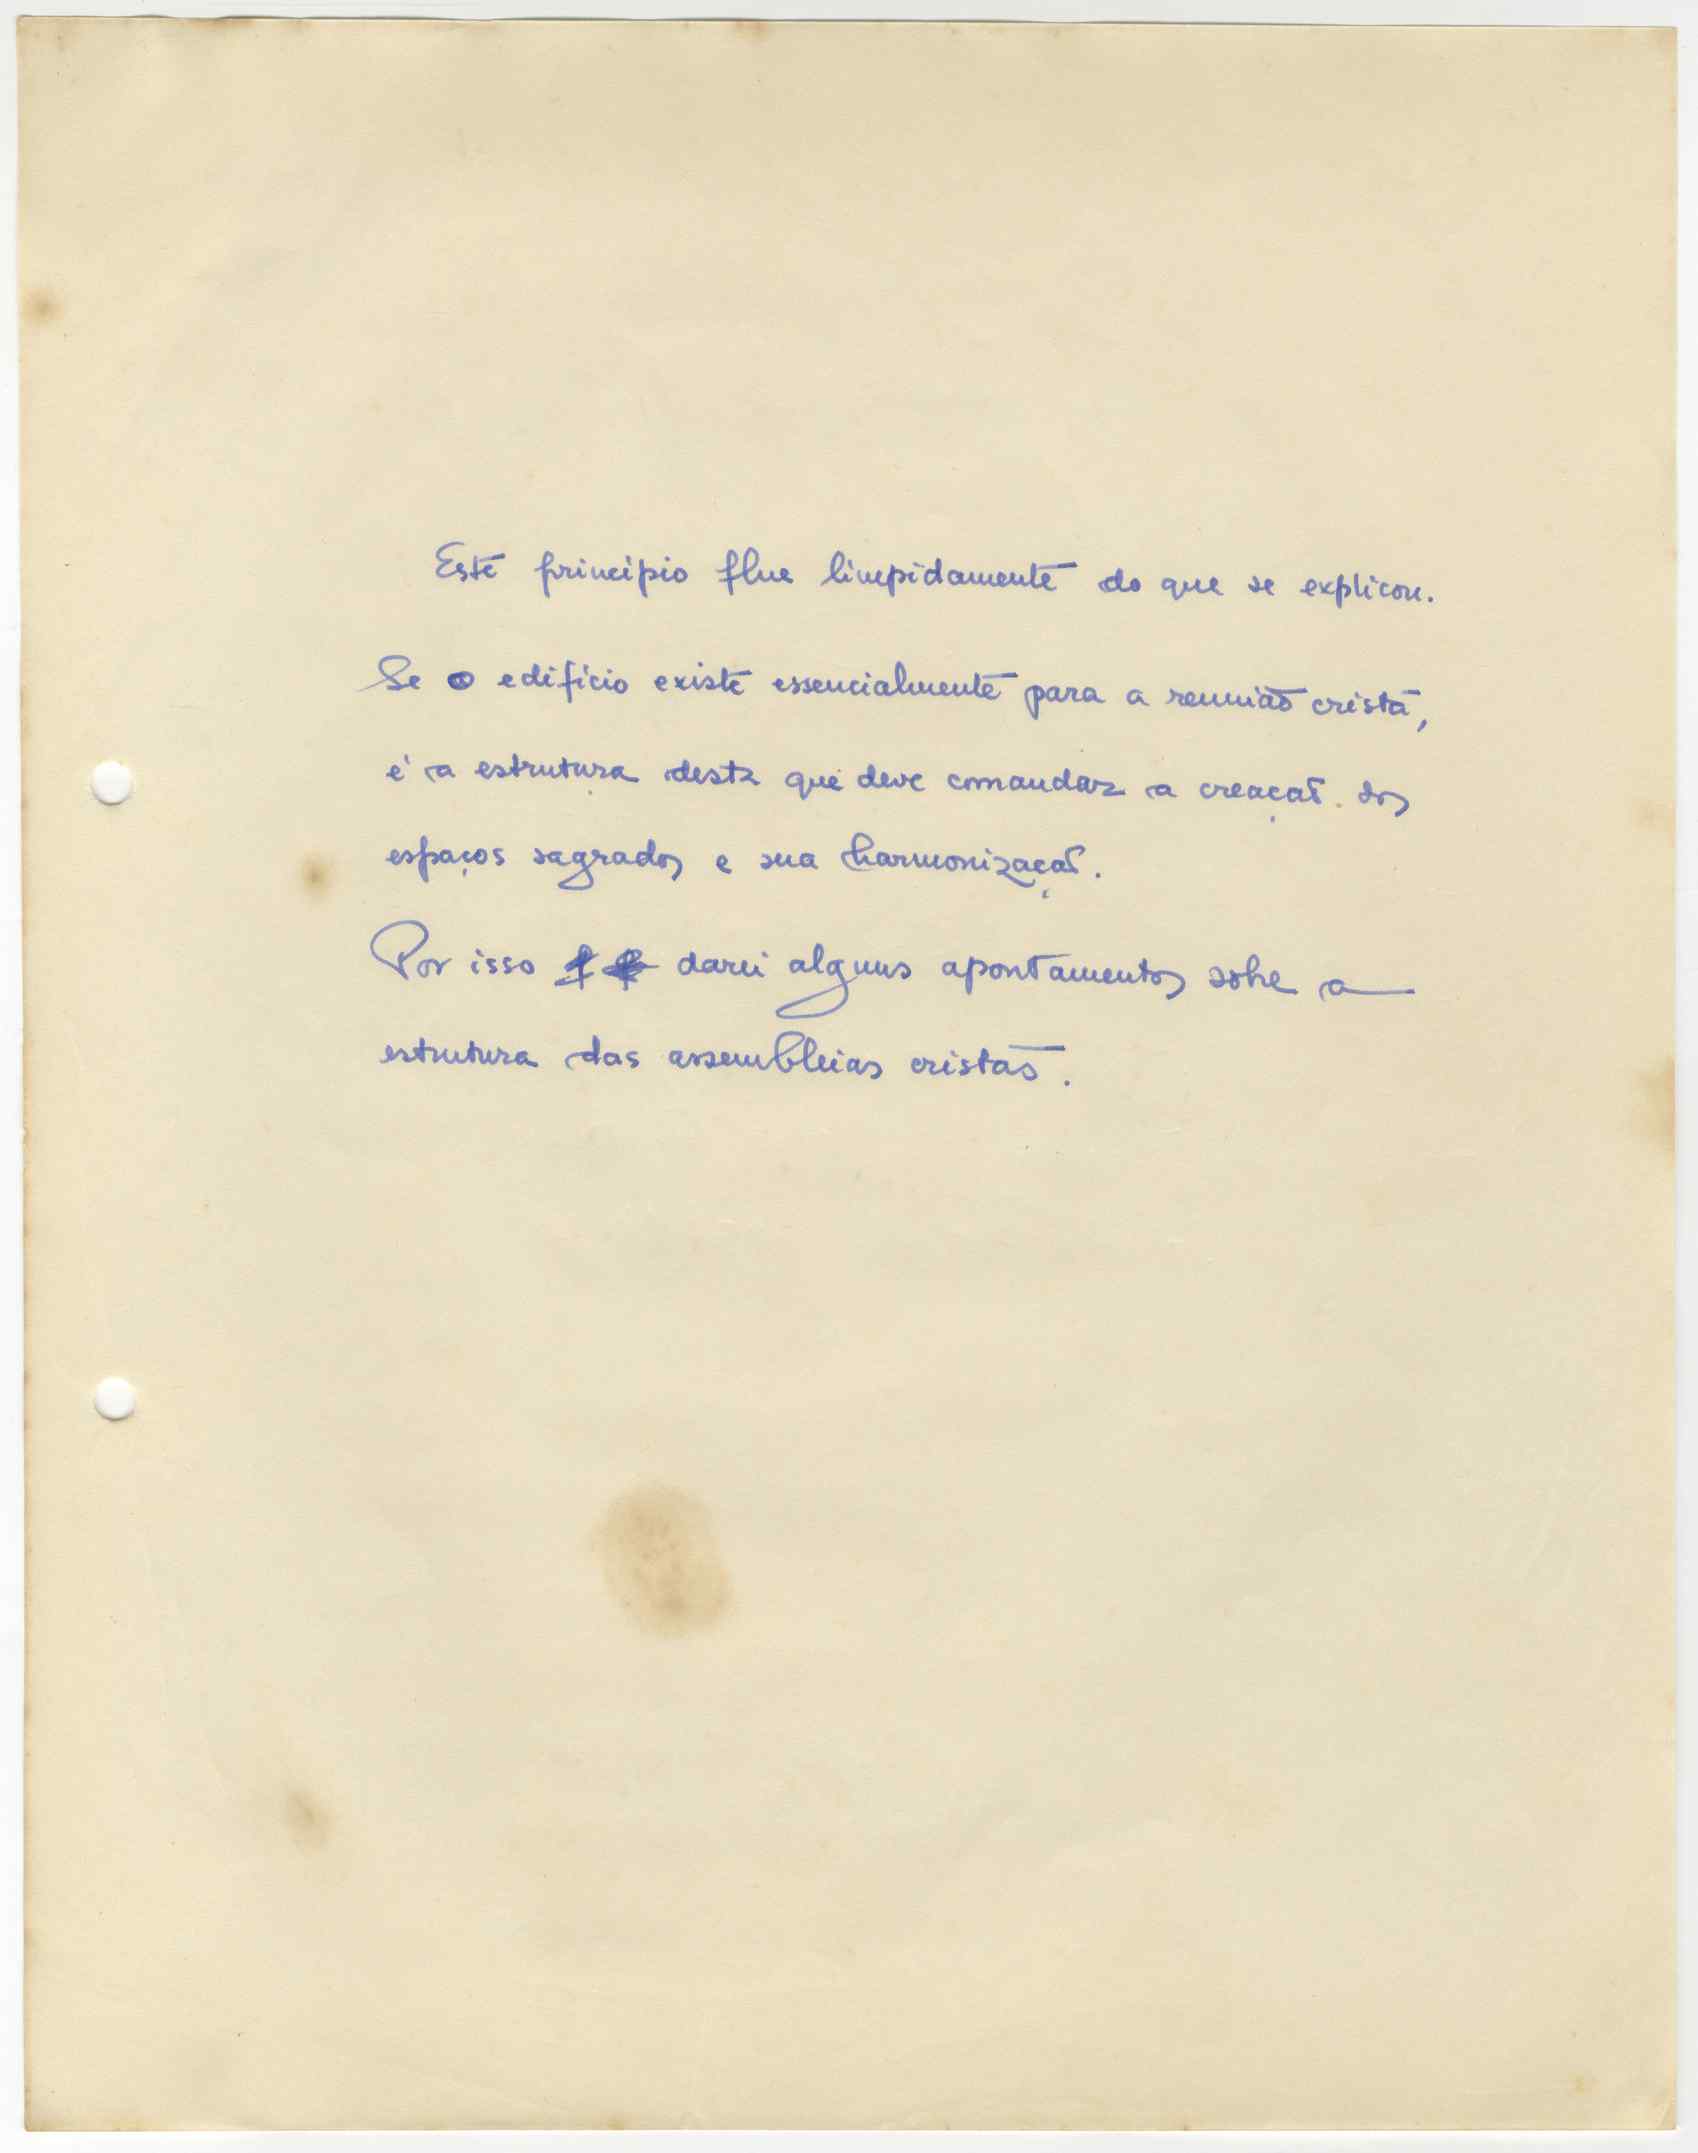 Este princípio flue limpidamente do que se explicou.
Se o edifício existe essencialmente para a reunião cristã,
é a estrutura desta que deve comandar a creação dos
espaços sagrados e sua harmonização.
Por isso darei alguns apontamentos sobre a
estrutura das assembleias cristãs.